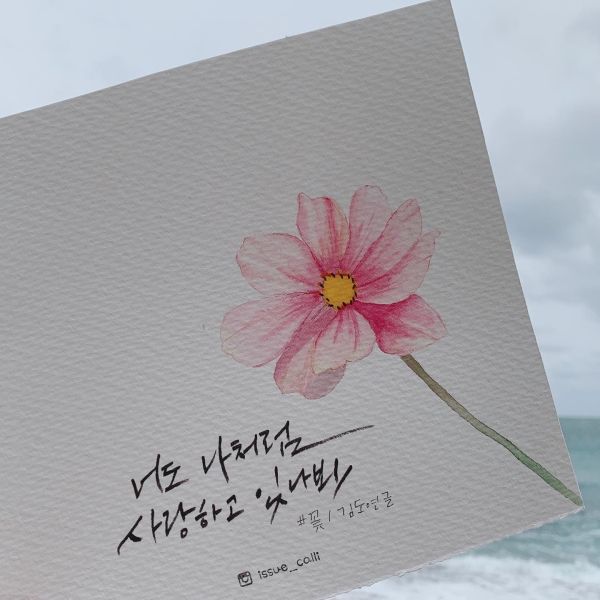 너도 나처럼
사랑하고 있나봐
#꽃 / 김도연글
issue_calli